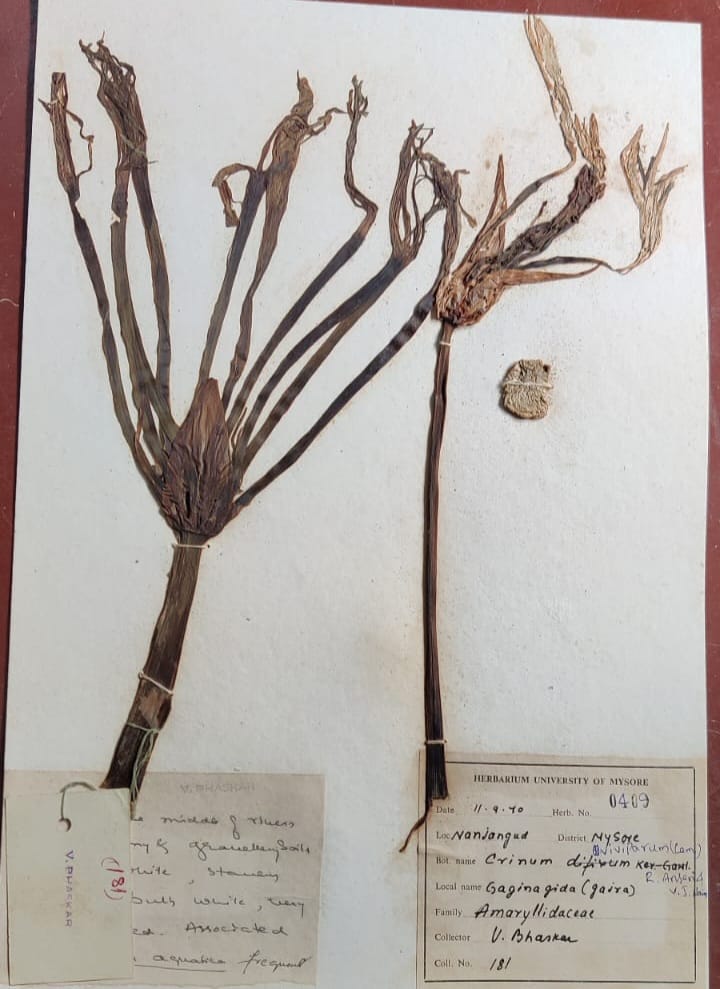 V. BHASKAR
middle of rivers
& gravelley soils
white, stamens
bulb white, very
ed. Associated
aquatica frequent
V. BHASKAR
(181)
HERBARIUM UNIVERSITY OF MYSORE
Date 11.9.70 Herb. No. 0409
Loc. Nanjangud District Mysore
viviparum (Lam)
Bot. name Crinum difixum Ker-Gawl.
R. Ansari &
V.J. Nair
Local name Gaginagida (gaira)
Family Amaryllidaceae
Collector V. Bhaskar
Coll. No. 181